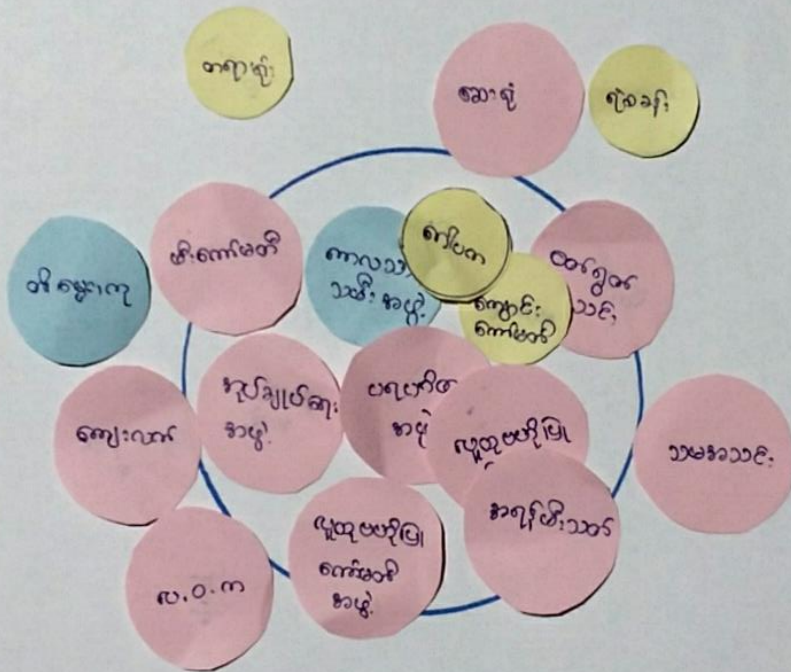 တရားရုံး
ဆေးရုံ
ရဲစခန်း
မီးကော်မတီ
ကာလသား
သမီး အဖွဲ့
ကျောင်း
ကော်မတီ
အုပ်ချုပ်ရေး
အဖွဲ့
ပရဟိတ
အဖွဲ့
လူထုဗဟိုပြု
ကျေးလက်
သမအသင်း
အရန်မီးသတ်
လူထုဗဟိုပြု
ကော်မတီ
အဖွဲ့
လ.ဝ.က